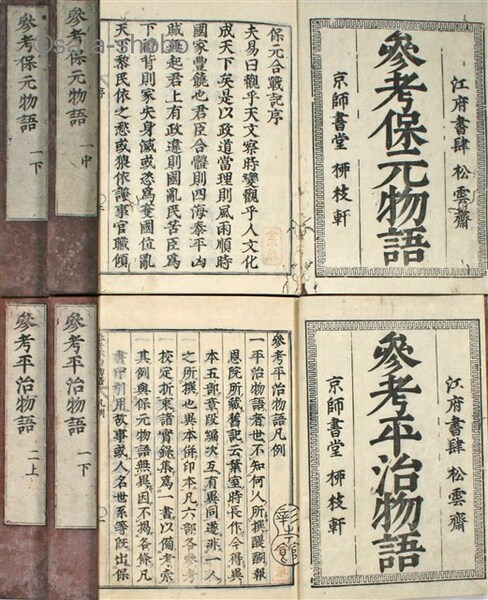 江府書肆 松雲齋
參考保元物語
京師書堂 栁枝軒
保元合戰記序
夫易曰觀乎天文察時變觀乎人文化
成天下矣是以政道當理則風雨順時
國家豊饒也君臣合體則四海泰平凶
賊無起君上有政違則國亂民苦臣爲
下背則家失身滅或悉爲蠻國位亂
天下黎民依之愁或猥依證事官職傾
參考保元物語 一中
參考保元物語 一下
江府書肆 松雲齋
參考平治物語
京師書堂 栁枝軒
參考平治物語凡例
一平治物語者世不知何人所撰醍醐報
恩院所藏舊記云葉室時長作今得異
本五部章段編次互有異同遂非一人
之所撰也與本併印本凡六部各參考
校定折衷諸實錄集爲一書以備考索
其例與保元物語無異因不揭各條凡
書中引用故事或人名世系等既出保
參考平治物語 一下
參考平治物語 二上